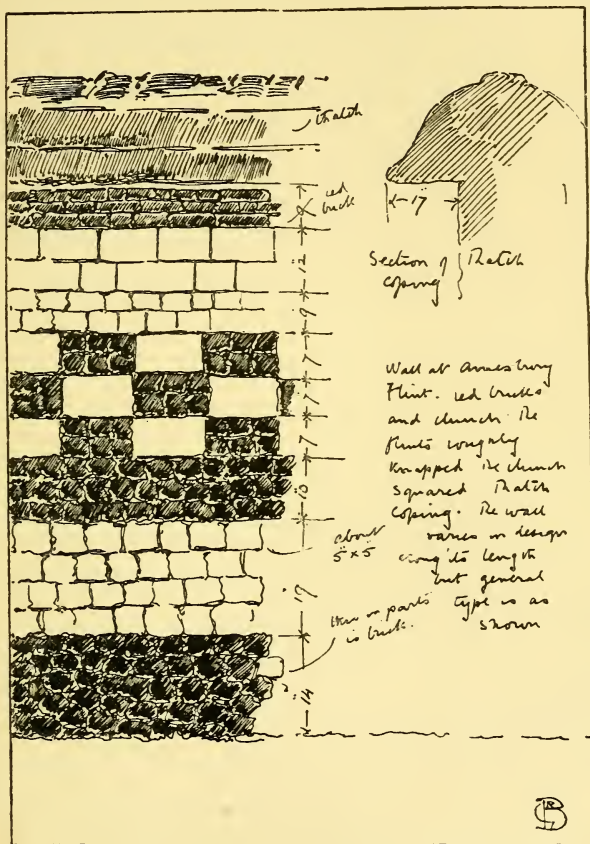 thatch
red
brick
17
Section of Thatch
coping
12
9
7
7
7
10
about
5 x 5
17
this in parts
is brick.
14
Wall at Amesbury
Flint. red bricks
and clunch. The
flints roughly
knapped The clunch
squared Thatch
coping. The wall
varies in design
along its length
but general
type is as
shown